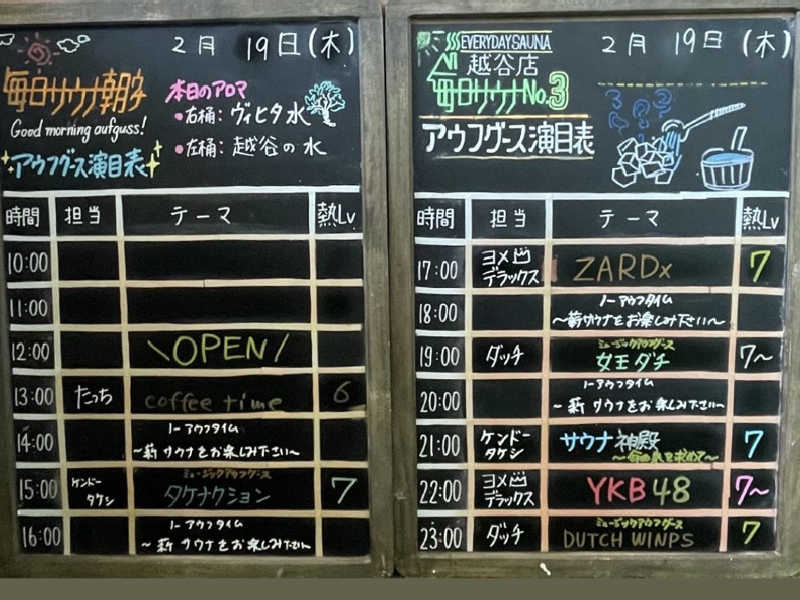 2月 19日(木)
毎日サウナ朝子
Good morning aufguss!
アウフグース演目表
本日のアロマ
・右桶：ヴィヒタ水
・左桶：越谷の水
時間 担当 テーマ 熱Lv
10:00
11:00
12:00 \OPEN/
13:00 たっち coffee time 6
14:00 ノーアウフタイム
〜薪サウナをお楽しみ下さい〜
15:00 ケンドータケシ ミュージックアウフグース
タケナクション 7
16:00 ノーアウフタイム
〜薪サウナをお楽しみ下さい〜
EVERYDAY SAUNA
越谷店
毎日サウナNo.3
アウフグース演目表
2月 19日(木)
時間 担当 テーマ 熱Lv
17:00 ヨメ凹デラックス ZARDx 7
18:00 ノーアウフタイム
〜薪サウナをお楽しみ下さい〜
19:00 ダッチ ミュージックアウフグース
女王ダチ 7〜
20:00 ノーアウフタイム
〜薪サウナをお楽しみ下さい〜
21:00 ケンドータケシ サウナ神殿
7
22:00 ヨメ凹デラックス YKB48 7〜
23:00 ダッチ ミュージックアウフグース
DUTCH WINPS 7